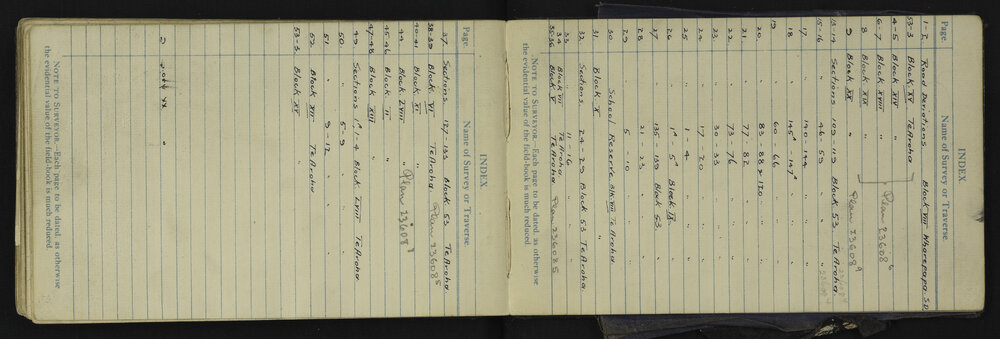 INDEX.
Page. Name of Survey or Traverse.
1-2. Road Deviations. Block VIII Wharepapa S.D.
53-3 Block XV TeAroha
4-5 Block XIV "
6-7 Block XVIII " Plan 23608
8 Block XIX "
9 Block XX " Plan 23608
13-14 Sections 109-119 Block 53 TeAroha
15-16 " 46-59 " "
17 " 140-144 " "
18 " 145A-147A " "
19 " 60-66 " "
20. " 83-88 & 120 " "
21 " 77-82 " "
22. " 73-76 " "
23. " 30-33 " "
24 " 17-20 " "
25 " 1-4 " "
26 " 1A-5A Block IX "
27 " 135-139 Block 53. "
28 " 21-23 " "
29 " 5-10 " "
30 School Reserve Blk VIII TeAroha
31. Block X "
32 Sections. 24-29 Block 53 TeAroha.
33 " 11-16 " "
34 Block VIII TeAroha
35-36 Block V TeAroha Plan 23608
NOTE TO SURVEYOR.—Each page to be dated, as otherwise
the evidential value of the field-book is much reduced.
INDEX
Page. Name of Survey or Traverse.
37. Sections. 127-133 Block 53 TeAroha
38-39 Block VI TeAroha Plan 23608
40-41 Block XI "
44 Block LVIII " Plan 23608
45-46 Block II "
47-48 Block XIII "
49 Sections 1A, 1-4 Block LVIII TeAroha
50. " 5-9 " "
51. " 9-12 " "
52. Block XVII TeAroha
53-3 Block XV "
NOTE TO SURVEYOR.—Each page to be dated, as otherwise
the evidential value of the field-book is much reduced.